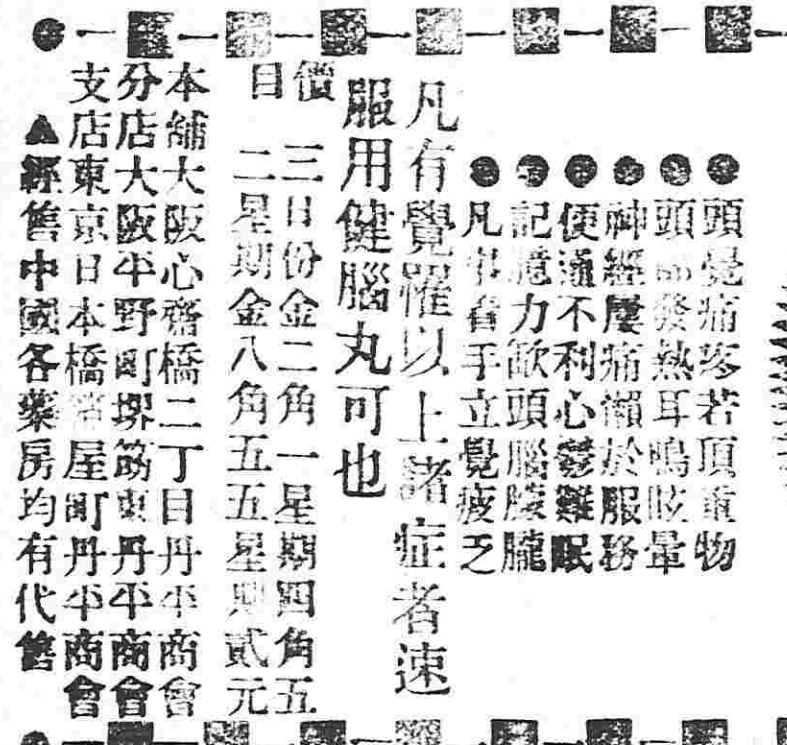 ●頭覺痛疼若頂重物
●頭部發熱耳鳴眩暈
●神經屢痛懶於服務
●便通不利心鬱難眠
●記憶力缺頭腦朦朧
●凡事着手立覺疲乏
凡有覺罹以上諸症者速
服用健腦丸可也
價目
三日份金二角一星期四角五
二星期金八角五五星期貳元
本舖大阪心齋橋二丁目丹平商會
分店大阪平野町堺筋東丹平商會
支店東京日本橋屋町丹平商會
▲經售中國各藥房均有代售